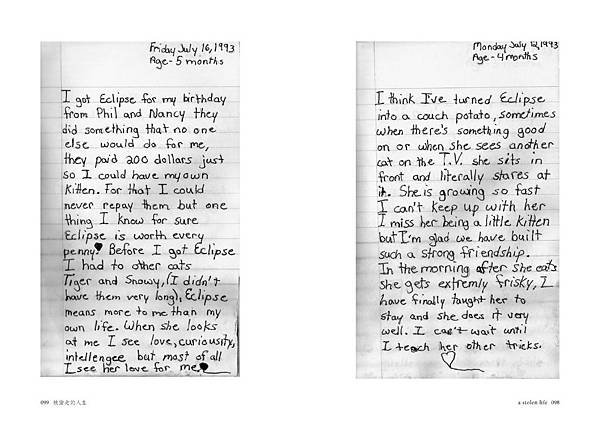 Friday July 16, 1993
Age - 5 months
I got Eclipse for my birthday
from Phil and Nancy they
did something that no one
else would do for me,
they paid 200 dollars just
so I could have my own
Kitten. For that I could
never repay them but one
thing I know for sure
Eclipse is worth every
penny Before I got Eclipse
I had to other cats
Tiger and Snowy, (I didn't
have them very long), Eclipse
means more to me than my
own life. When she looks
at me I see love, curiousity,
intellengee but most of all
I see her love for me.
099 被偷走的人生
Monday July 12, 1993
Age - 4 months
I think I've turned Eclipse
into a couch potato, sometimes
when there's something good
on or when she sees another
cat on the T.V. she sits in
front and literally stares at
it. She is growing so fast
I can't keep up with her
I miss her being a little kitten
but I'm glad we have built
such a strong friendship.
In the morning after she eats
she gets extremly frisky, I
have finally taught her to
stay and she does it very
well. I can't wait until
I teach her other tricks.
a stolen life 098